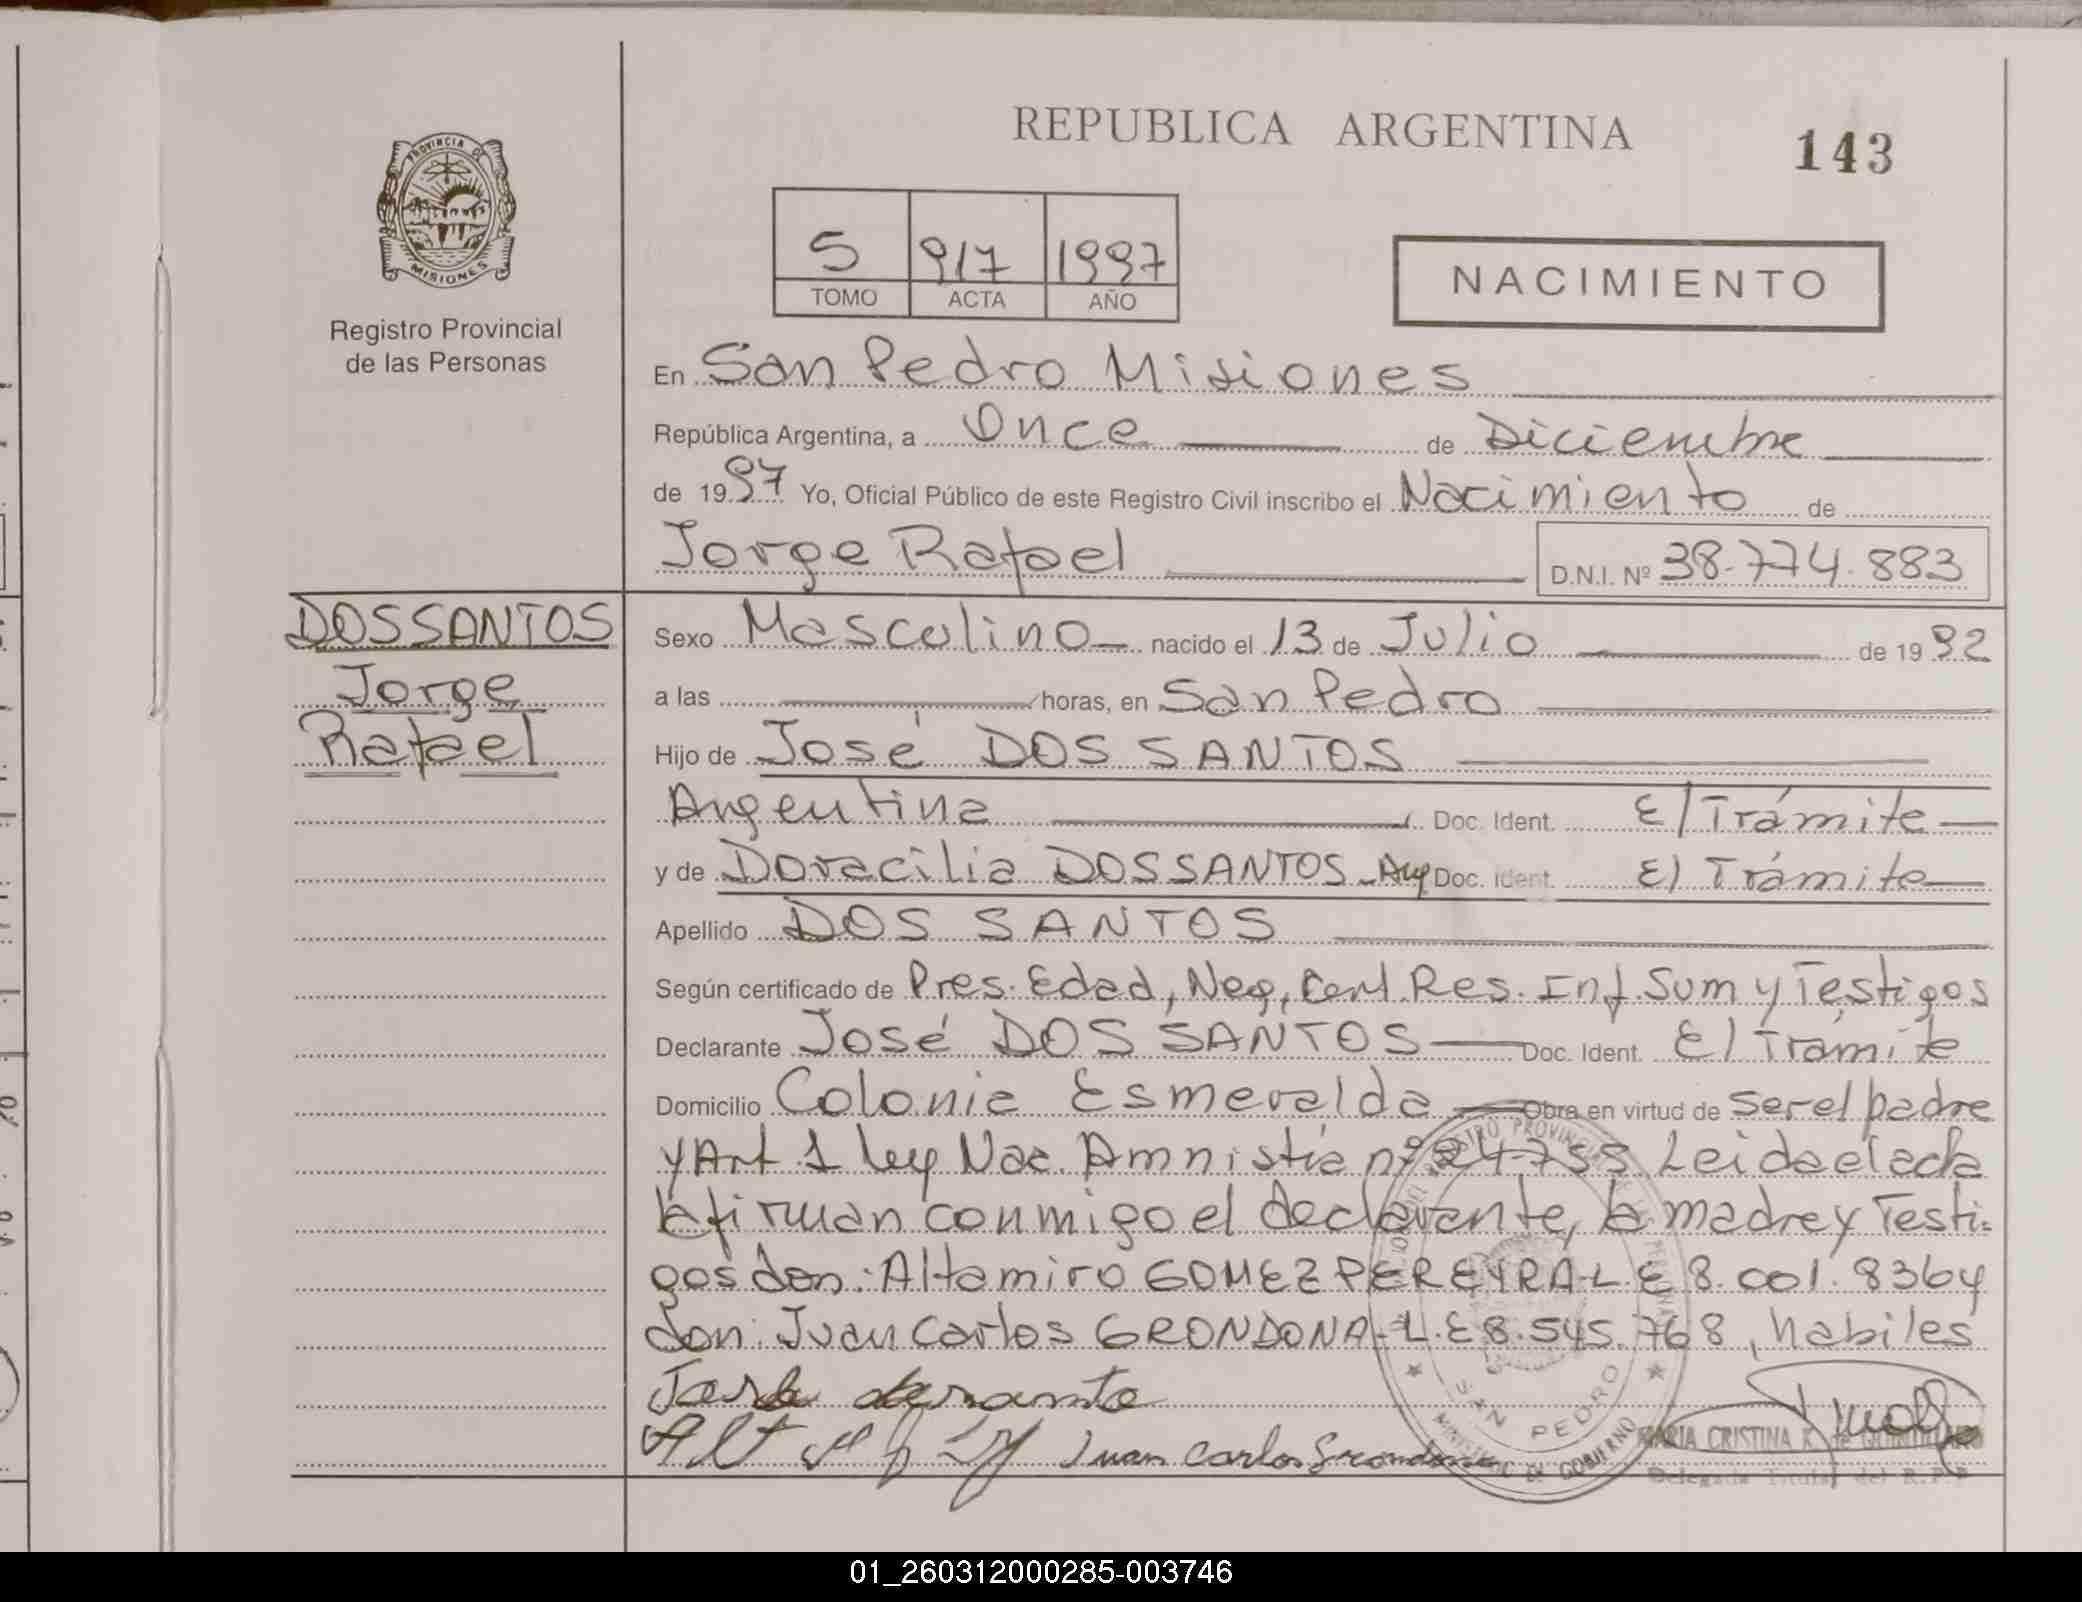 REPUBLICA ARGENTINA
143
PROVINCIA DE
MISIONES
Registro Provincial
de las Personas
5 917 1997
TOMO ACTA AÑO
NACIMIENTO
En San Pedro Misiones
República Argentina, a Once de Diciembre
de 1997 Yo, Oficial Público de este Registro Civil inscribo el Nacimiento de
Jorge Rafael D.N.I. Nº 38.774.883
DOSSANTOS
Jorge
Rafael
Sexo Masculino nacido el 13 de Julio de 1992
a las horas, en San Pedro
Hijo de José DOS SANTOS
Argentina Doc. Ident. E/Trámite
y de Doracilia DOSSANTOS - Arg Doc. Ident. E/Trámite
Apellido DOS SANTOS
Según certificado de Pres. Edad, Neg, Cert. Res. Inf. Sum y Testigos
Declarante José DOS SANTOS Doc. Ident. E/Tramite
Domicilio Colonia Esmeralda Obra en virtud de ser el padre
y Art 1 ley Nac. Amnistía nº 24755. Leida el acta
la firman conmigo el declarante, la madre y Testi-
gos don: Altamiro GOMEZ PEREYRA-L.E 8.001.836 y
don: Juan Carlos GRONDONA-L.E 8.545.768, habiles
Juan Carlos Grondona
SAN PEDRO
MARIA CRISTINA K. de
Delegada Titular del R.P.P.
01_260312000285-003746